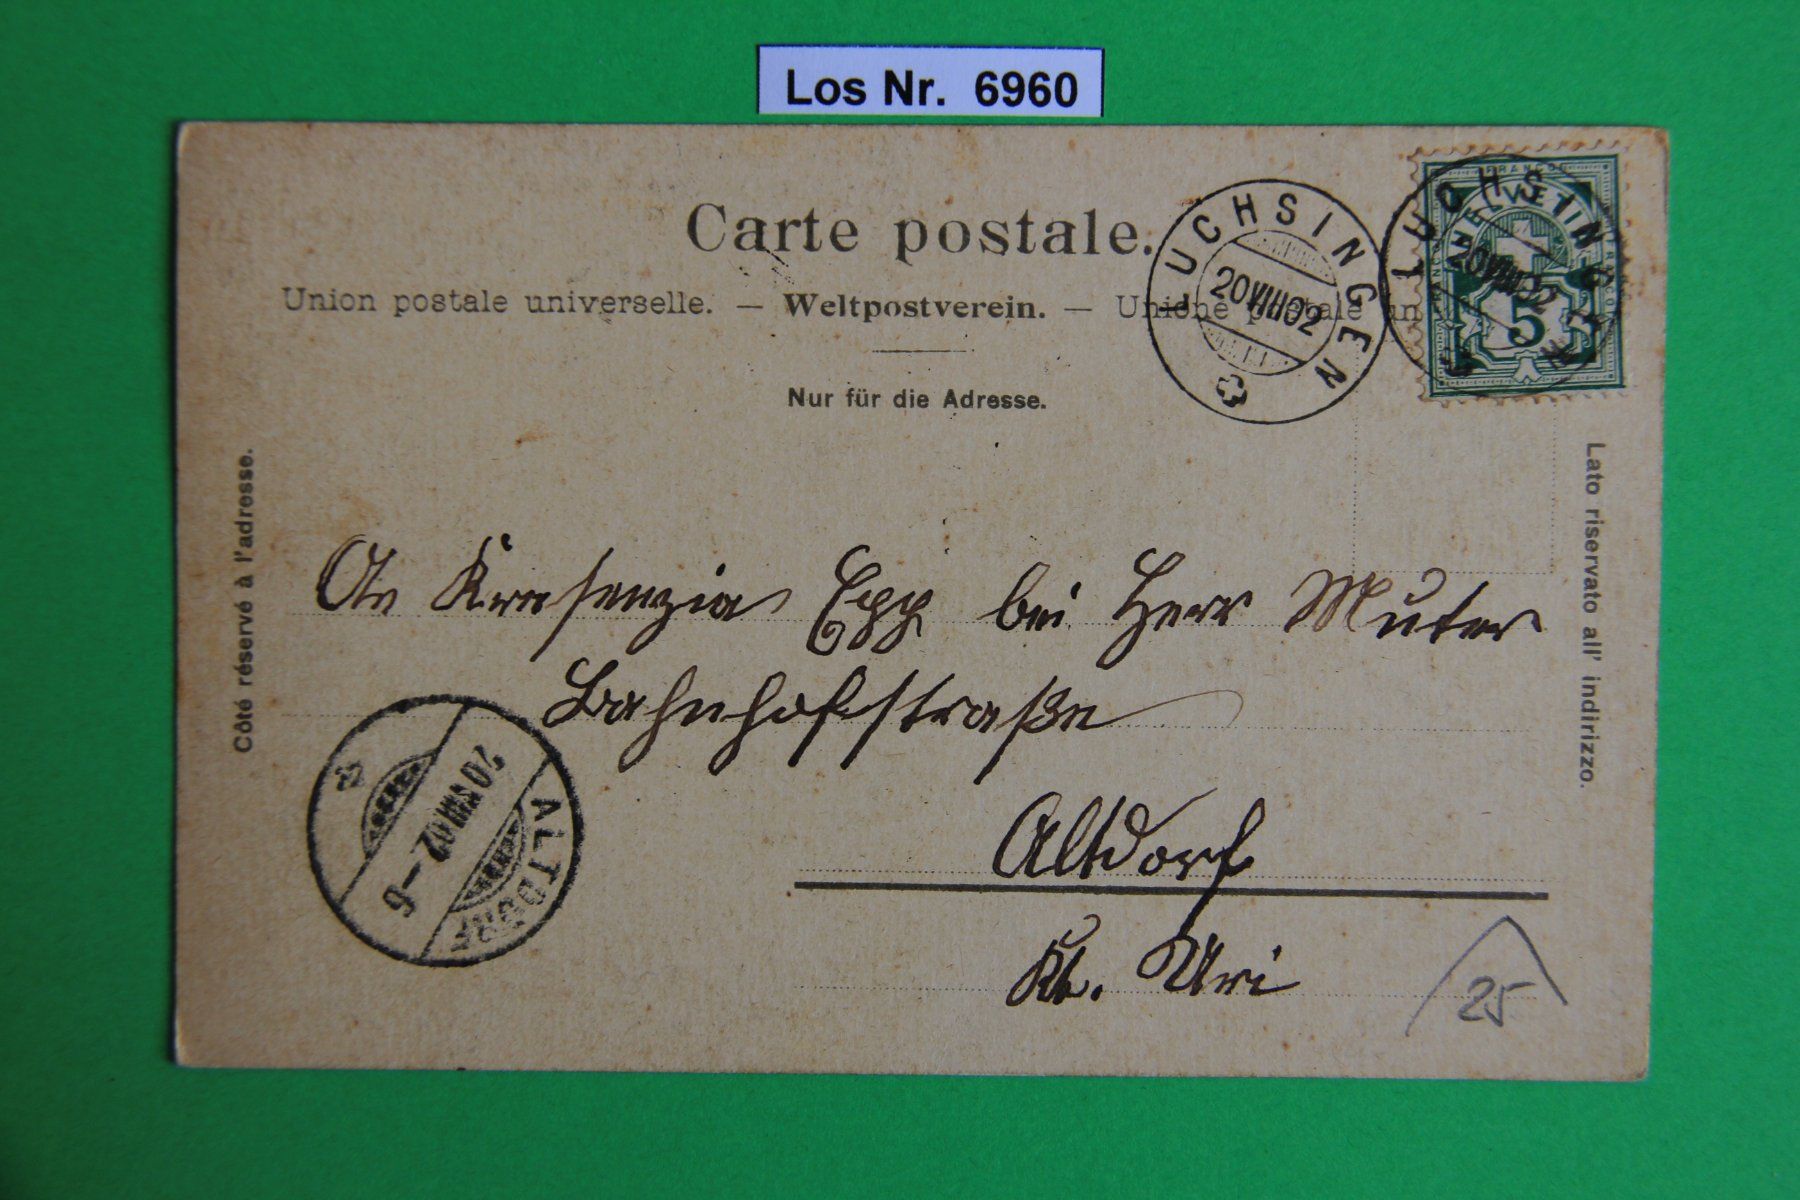 Los Nr. 6960
Carte postale.
Union postale universelle. — Weltpostverein. — Unione postale un
Nur für die Adresse.
LUCHSINGEN
20 VIII 02
LUCHSINGEN
20 VIII 02
FRANCO
HELVETIA
5
Côté réservé à l'adresse.
Lato riservato all' indirizzo.
An Kresenzia Epp bei Herr Muter
Bahnhofstraße
Altdorf
Kt. Uri
ALTDORF
20 VIII 02 – 6
25